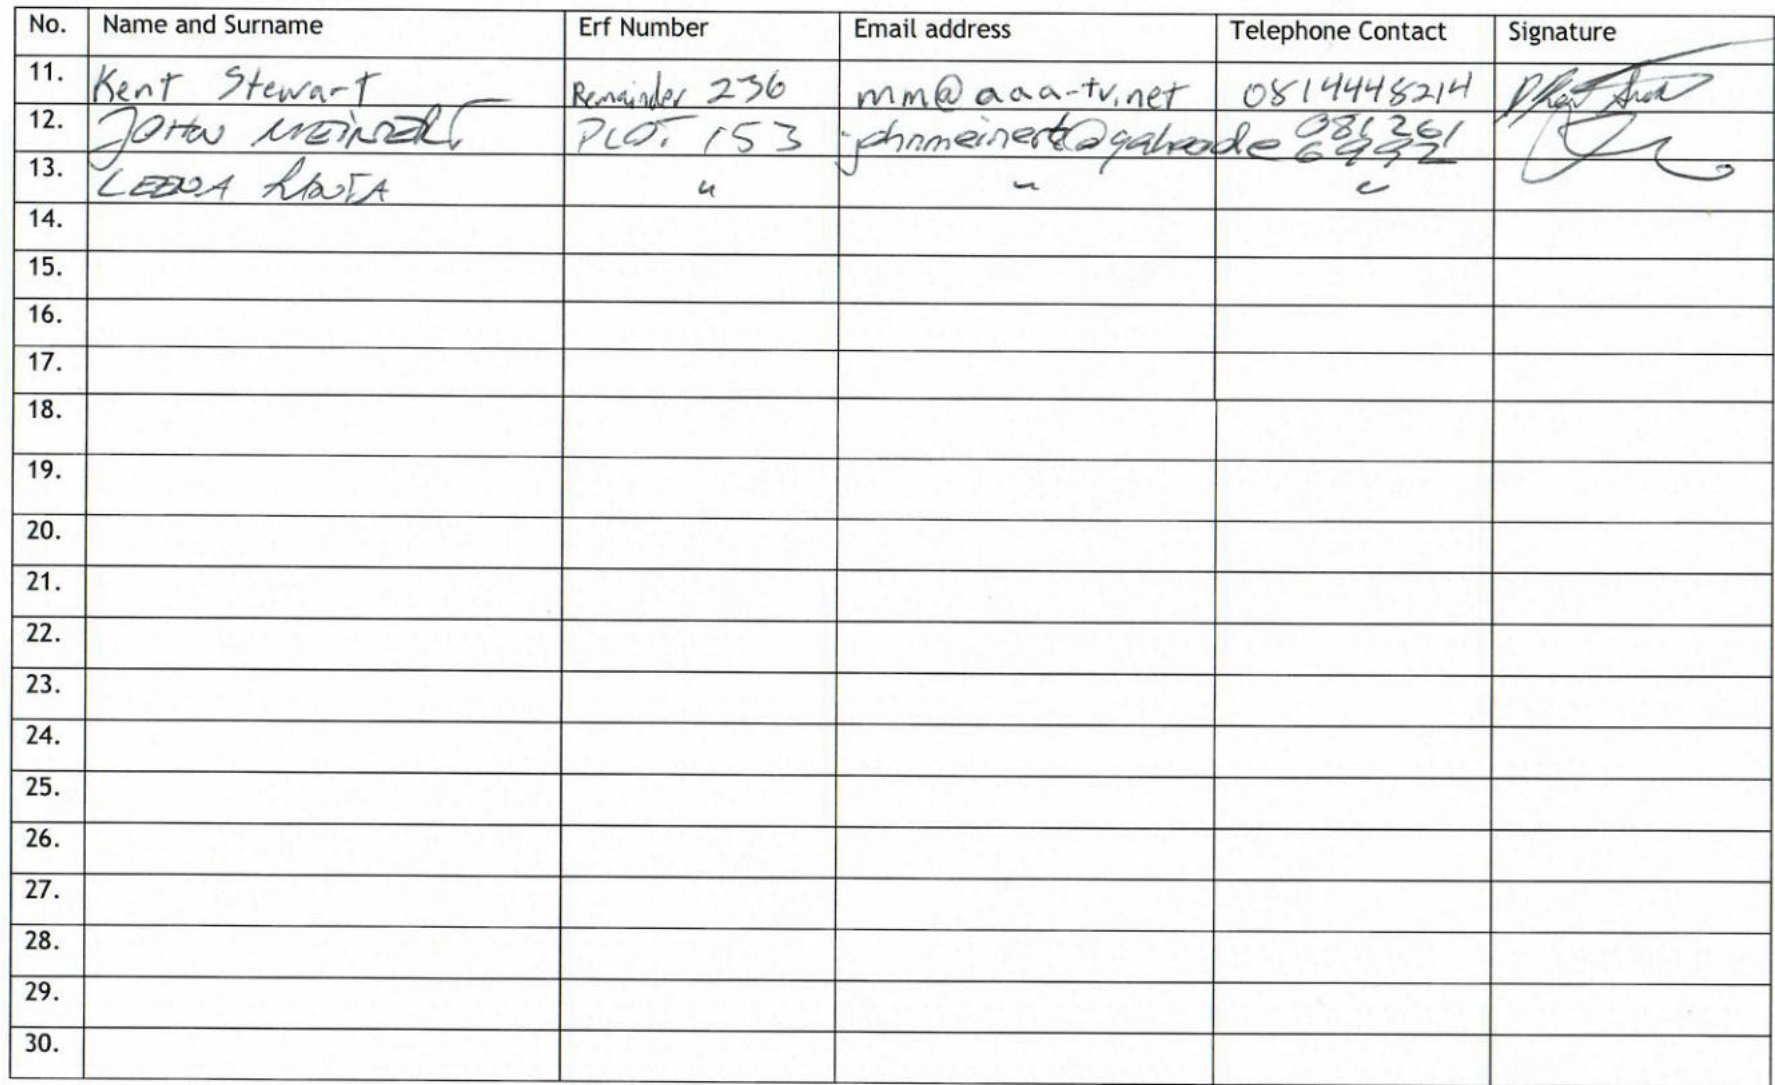 No. Name and Surname Erf Number Email address Telephone Contact Signature
11. Kent Stewart Remainder 236 mm@aaa-tv.net 0814448214
12. JOHN MEINERT PLOT 153 081 261
6992
13. LEENA " " "
14.
15.
16.
17.
18.
19.
20.
21.
22.
23.
24.
25.
26.
27.
28.
29.
30.